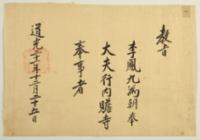 敎旨
李鳳九爲朝奉
大夫行內贍寺
奉事者
道光年十二月五日